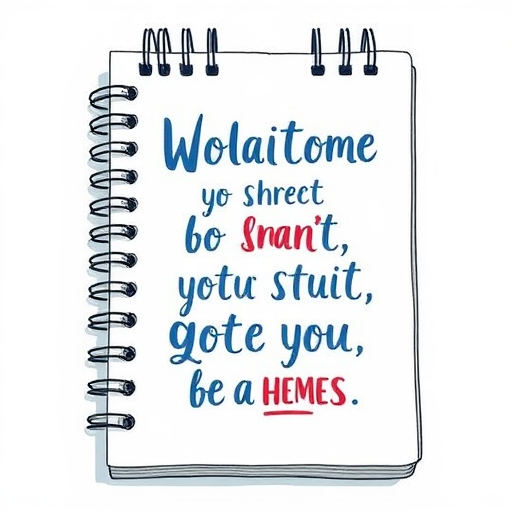 Wolaitome
yo shrect
bo Snan't,
yotu stuit,
gote you,
be a HEMES.